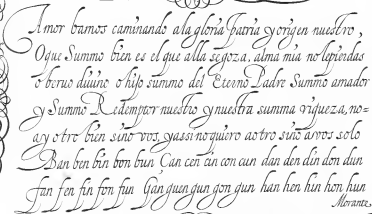 Amor bamos caminando ala gloria patria y origen nuestro,
O que Summo bien es el que alla se goza, alma mia no le pierdas
o beruo diuino o hijo summo del Eterno Padre Summo amador
y Summo Redemptor nuestro y nuestra summa riqueza, no=
ay otro bien sino vos, y assi no quiero a otro sino a vos solo
Ban ben bin bon bun Can cen cin con cun dan den din don dun
fan fen fin fon fun Gan guen guin gon gun han hen hin hon hun
Morante,